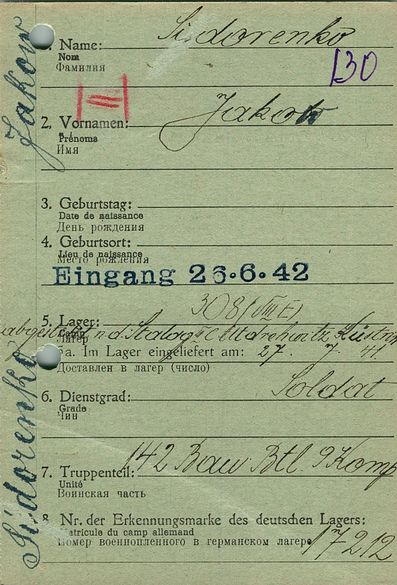 Jakow
Sidorenko
1. Name: Sidorenko
Nom
Фамилия
130
2. Vornamen: Jakow
Prénoms
Имя
3. Geburtstag:
Date de naissance
День рождения
4. Geburtsort:
Lieu de naissance
Место рождения
Eingang 26.6.42
5. Lager: 308 (VIII E)
Camp
Лагерь
n. d. Stalag III C Küstrin
5a. Im Lager eingeliefert am: 27. 7. 41
Доставлен в лагерь (число)
6. Dienstgrad: Soldat
Grade
Чин
7. Truppenteil: 142 Bau Btl. 9 Komp
Unité
Воинская часть
8. Nr. der Erkennungsmarke des deutschen Lagers:
Matricule du camp allemand
Номер военнопленного в германском лагере 17212